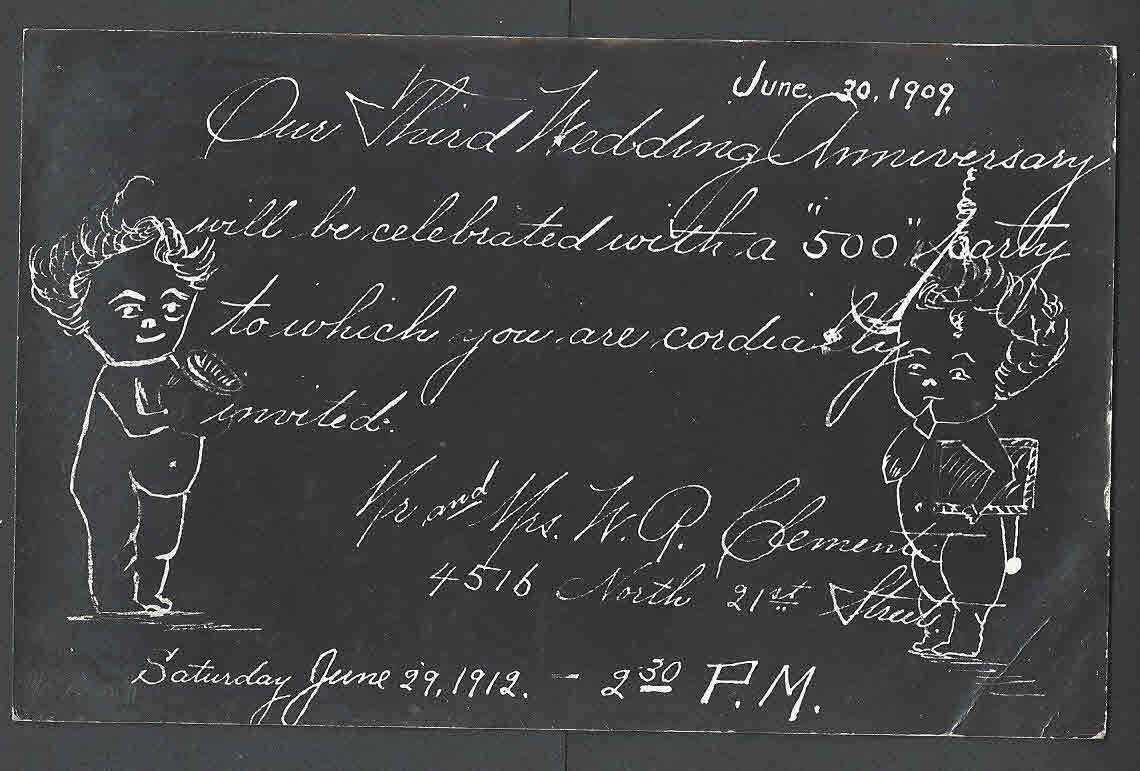 June 30, 1909.
Our Third Wedding Anniversary
will be celebrated with a "500" party
to which you are cordially
invited.
Mr. and Mrs. W. P. Clement.
4516 North 21st Street.
Saturday June 29, 1912. - 2 30 P.M.